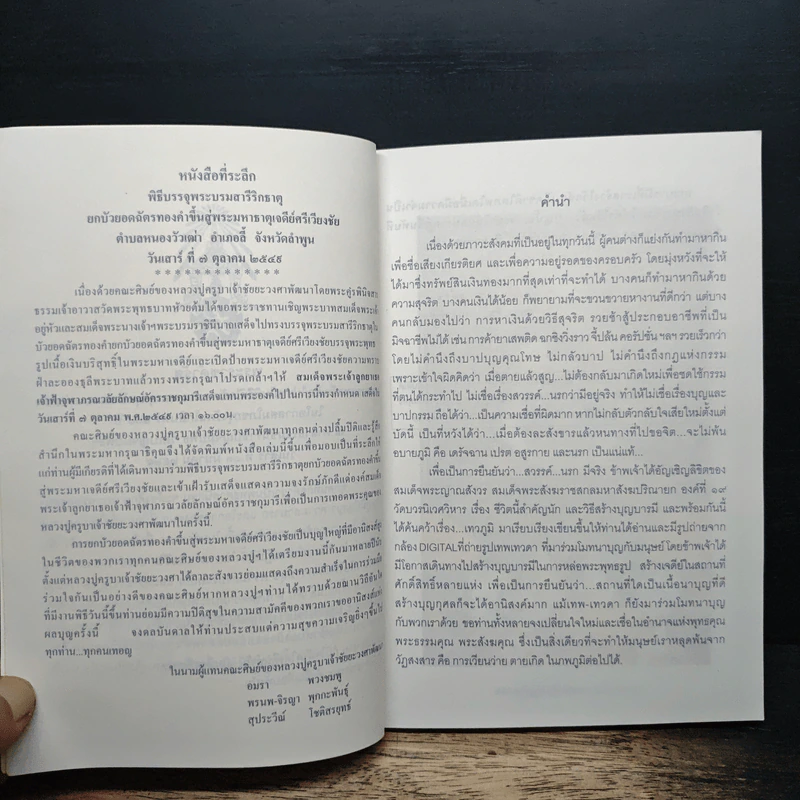 หนังสือที่ระลึก
พิธีบรรจุพระบรมสารีริกธาตุ
ยกบัวยอดฉัตรทองคำขึ้นสู่พระมหาธาตุเจดีย์ศรีเวียงชัย
ตำบลหนองวัวเฒ่า อำเภอลี้ จังหวัดลำพูน
วันเสาร์ ที่ ๗ ตุลาคม ๒๕๔๙
* * * * * * * * * * * * *
เนื่องด้วยคณะศิษย์ของหลวงปู่ครูบาเจ้าชัยยะวงศาพัฒนาโดยพระครูพินิจสาร
ธรรมเจ้าอาวาสวัดพระพุทธบาทห้วยต้มได้ขอพระราชทานเชิญพระบาทสมเด็จพระเจ้า
อยู่หัวและสมเด็จพระนางเจ้าฯพระบรมราชินีนาถเสด็จไปทรงบรรจุพระบรมสารีริกธาตุใน
บัวยอดฉัตรทองคำยกยอดฉัตรทองคำขึ้นสู่พระมหาธาตุเจดีย์ศรีเวียงชัยบรรจุพระพุทธ
รูปเนื้อเงินบริสุทธิ์ในพระมหาเจดีย์และเปิดป้ายพระมหาเจดีย์ศรีเวียงชัยความทราบ
ฝ่าละอองธุลีพระบาทแล้วทรงพระกรุณาโปรดเกล้าฯให้ สมเด็จพระเจ้าลูกยาเธอ
เจ้าฟ้าจุฬาภรณวลัยลักษณ์อัครราชกุมารีเสด็จแทนพระองค์ไปในการนี้ทรงกำหนด เสด็จใน
วันเสาร์ที่ ๗ ตุลาคม พ.ศ.๒๕๔๙ เวลา ๑๖.๐๐น.
คณะศิษย์ของหลวงปู่ครูบาเจ้าชัยยะวงศาพัฒนาทุกคนต่างปลื้มปิติและรู้สึก
สำนึกในพระมหากรุณาธิคุณจึงได้จัดพิมพ์หนังสือเล่มนี้ขึ้นเพื่อมอบเป็นที่ระลึกให้
แก่ท่านผู้มีเกียรติที่ได้เดินทางมาร่วมพิธีบรรจุพระบรมสารีริกธาตุยกบัวยอดฉัตรทองคำขึ้น
สู่พระมหาเจดีย์ศรีเวียงชัยและเข้าเฝ้ารับเสด็จแสดงความจงรักภักดีแด่องค์สมเด็จ
พระเจ้าลูกยาเธอเจ้าฟ้าจุฬาภรณวลัยลักษณ์อัครราชกุมารีเพื่อเป็นการเทอดพระคุณของ
หลวงปู่ครูบาเจ้าชัยยะวงศาพัฒนาในครั้งนี้.
การยกบัวยอดฉัตรทองคำขึ้นสู่พระมหาเจดีย์ศรีเวียงชัยเป็นบุญใหญ่ที่มีอานิสงส์
ในชีวิตของพวกเราทุกคนคณะศิษย์ของหลวงปู่ฯได้เตรียมงานนี้กันมาหลายปี
ตั้งแต่หลวงปู่ครูบาเจ้าชัยยะวงศาได้ลาละสังขารย่อมแสดงถึงความสำเร็จในการร่วมมือ
ร่วมใจกันเป็นอย่างดีของคณะศิษย์หากหลวงปู่ฯ ท่านได้ทราบด้วยญานวิถีอันใด
ที่มีงานพิธีวันนี้ขึ้นท่านย่อมมีความปิติสุขในความสามัคคีของพวกเราขออานิสงส์แห่ง
ผลบุญครั้งนี้ จงดลบันดาลให้ท่านประสบแต่ความสุขความเจริญยิ่งๆขึ้นไป
ทุกท่าน...ทุกคนเทอญ
ในนามผู้แทนคณะศิษย์ของหลวงปู่ครูบาเจ้าชัยยะวงศาพัฒนา
อมรา พวงชมพู
พรนพ-จิรญา พุกกะพันธุ์
สุประวีณ์ โชติสรยุทธ์
คำนำ
เนื่องด้วยภาวะสังคมที่เป็นอยู่ในทุกวันนี้ ผู้คนต่างก็แย่งกันทำมาหากิน
เพื่อชื่อเสียงเกียรติยศ และเพื่อความอยู่รอดของครอบครัว โดยมุ่งหวังที่จะให้
ได้มาซึ่งทรัพย์สินเงินทองมากที่สุดเท่าที่จะทำได้ บางคนก็ทำมาหากินด้วย
ความสุจริต บางคนเงินได้น้อย ก็พยายามที่จะขวนขวายหางานที่ดีกว่า แต่บาง
คนกลับมองไปว่า การหาเงินด้วยวิธีสุจริต รวยช้าสู้ประกอบอาชีพที่เป็น
มิจฉาชีพไม่ได้ เช่น การค้ายาเสพติด ฉกชิงวิ่งราว จี้ปล้น คอรัปชั่น ฯลฯ รวยเร็วกว่า
โดยไม่คำนึงถึงบาปบุญคุณโทษ ไม่กลัวบาป ไม่คำนึงถึงกฎแห่งกรรม
เพราะเข้าใจผิดคิดว่า เมื่อตายแล้วสูญ...ไม่ต้องกลับมาเกิดใหม่เพื่อชดใช้กรรม
ที่ตนได้กระทำไป ไม่เชื่อเรื่องสวรรค์...นรกว่ามีอยู่จริง ทำให้ไม่เชื่อเรื่องบุญและ
บาปกรรม ถือได้ว่า...เป็นความเชื่อที่ผิดมาก หากไม่กลับตัวกลับใจเสียใหม่ตั้งแต่
บัดนี้ เป็นที่หวังได้ว่า...เมื่อต้องละสังขารแล้วหนทางที่ไปของจิต...จะไม่พ้น
อบายภูมิ คือ เดรัจฉาน เปรต อสูรกาย และ นรก เป็นแน่แท้...
เพื่อเป็นการยืนยันว่า...สวรรค์...นรก มีจริง ข้าพเจ้าได้อัญเชิญลิขิตของ
สมเด็จพระญาณสังวร สมเด็จพระสังฆราชสกลมหาสังฆปริณายก องค์ที่ ๑๙
วัดบวรนิเวศวิหาร เรื่อง ชีวิตนี้สำคัญนัก และวิธีสร้างบุญบารมี และพร้อมกันนี้
ได้ค้นคว้าเรื่อง...เทวภูมิ มาเรียบเรียงเขียนขึ้นให้ท่านได้อ่านและมีรูปถ่ายจาก
กล้อง DIGITALที่ถ่ายรูปเทพเทวดา ที่มาร่วมโมทนาบุญกับมนุษย์ โดยข้าพเจ้าได้
มีโอกาสเดินทางไปสร้างบุญบารมีในการหล่อพระพุทธรูป สร้างเจดีย์ในสถานที่
ศักดิ์สิทธิ์หลายแห่ง เพื่อเป็นการยืนยันว่า...สถานที่ใดเป็นเนื้อนาบุญที่ดี
สร้างบุญกุศลก็จะได้อานิสงค์มาก แม้เทพ-เทวดา ก็ยังมาร่วมโมทนาบุญ
กับพวกเราด้วย ขอท่านทั้งหลายจงเปลี่ยนใจใหม่และเชื่อในอำนาจแห่งพุทธคุณ
พระธรรมคุณ พระสังฆคุณ ซึ่งเป็นสิ่งเดียวที่จะทำให้มนุษย์เราหลุดพ้นจาก
วัฏสงสาร คือ การเวียนว่าย ตายเกิด ในภพภูมิต่อไปได้.